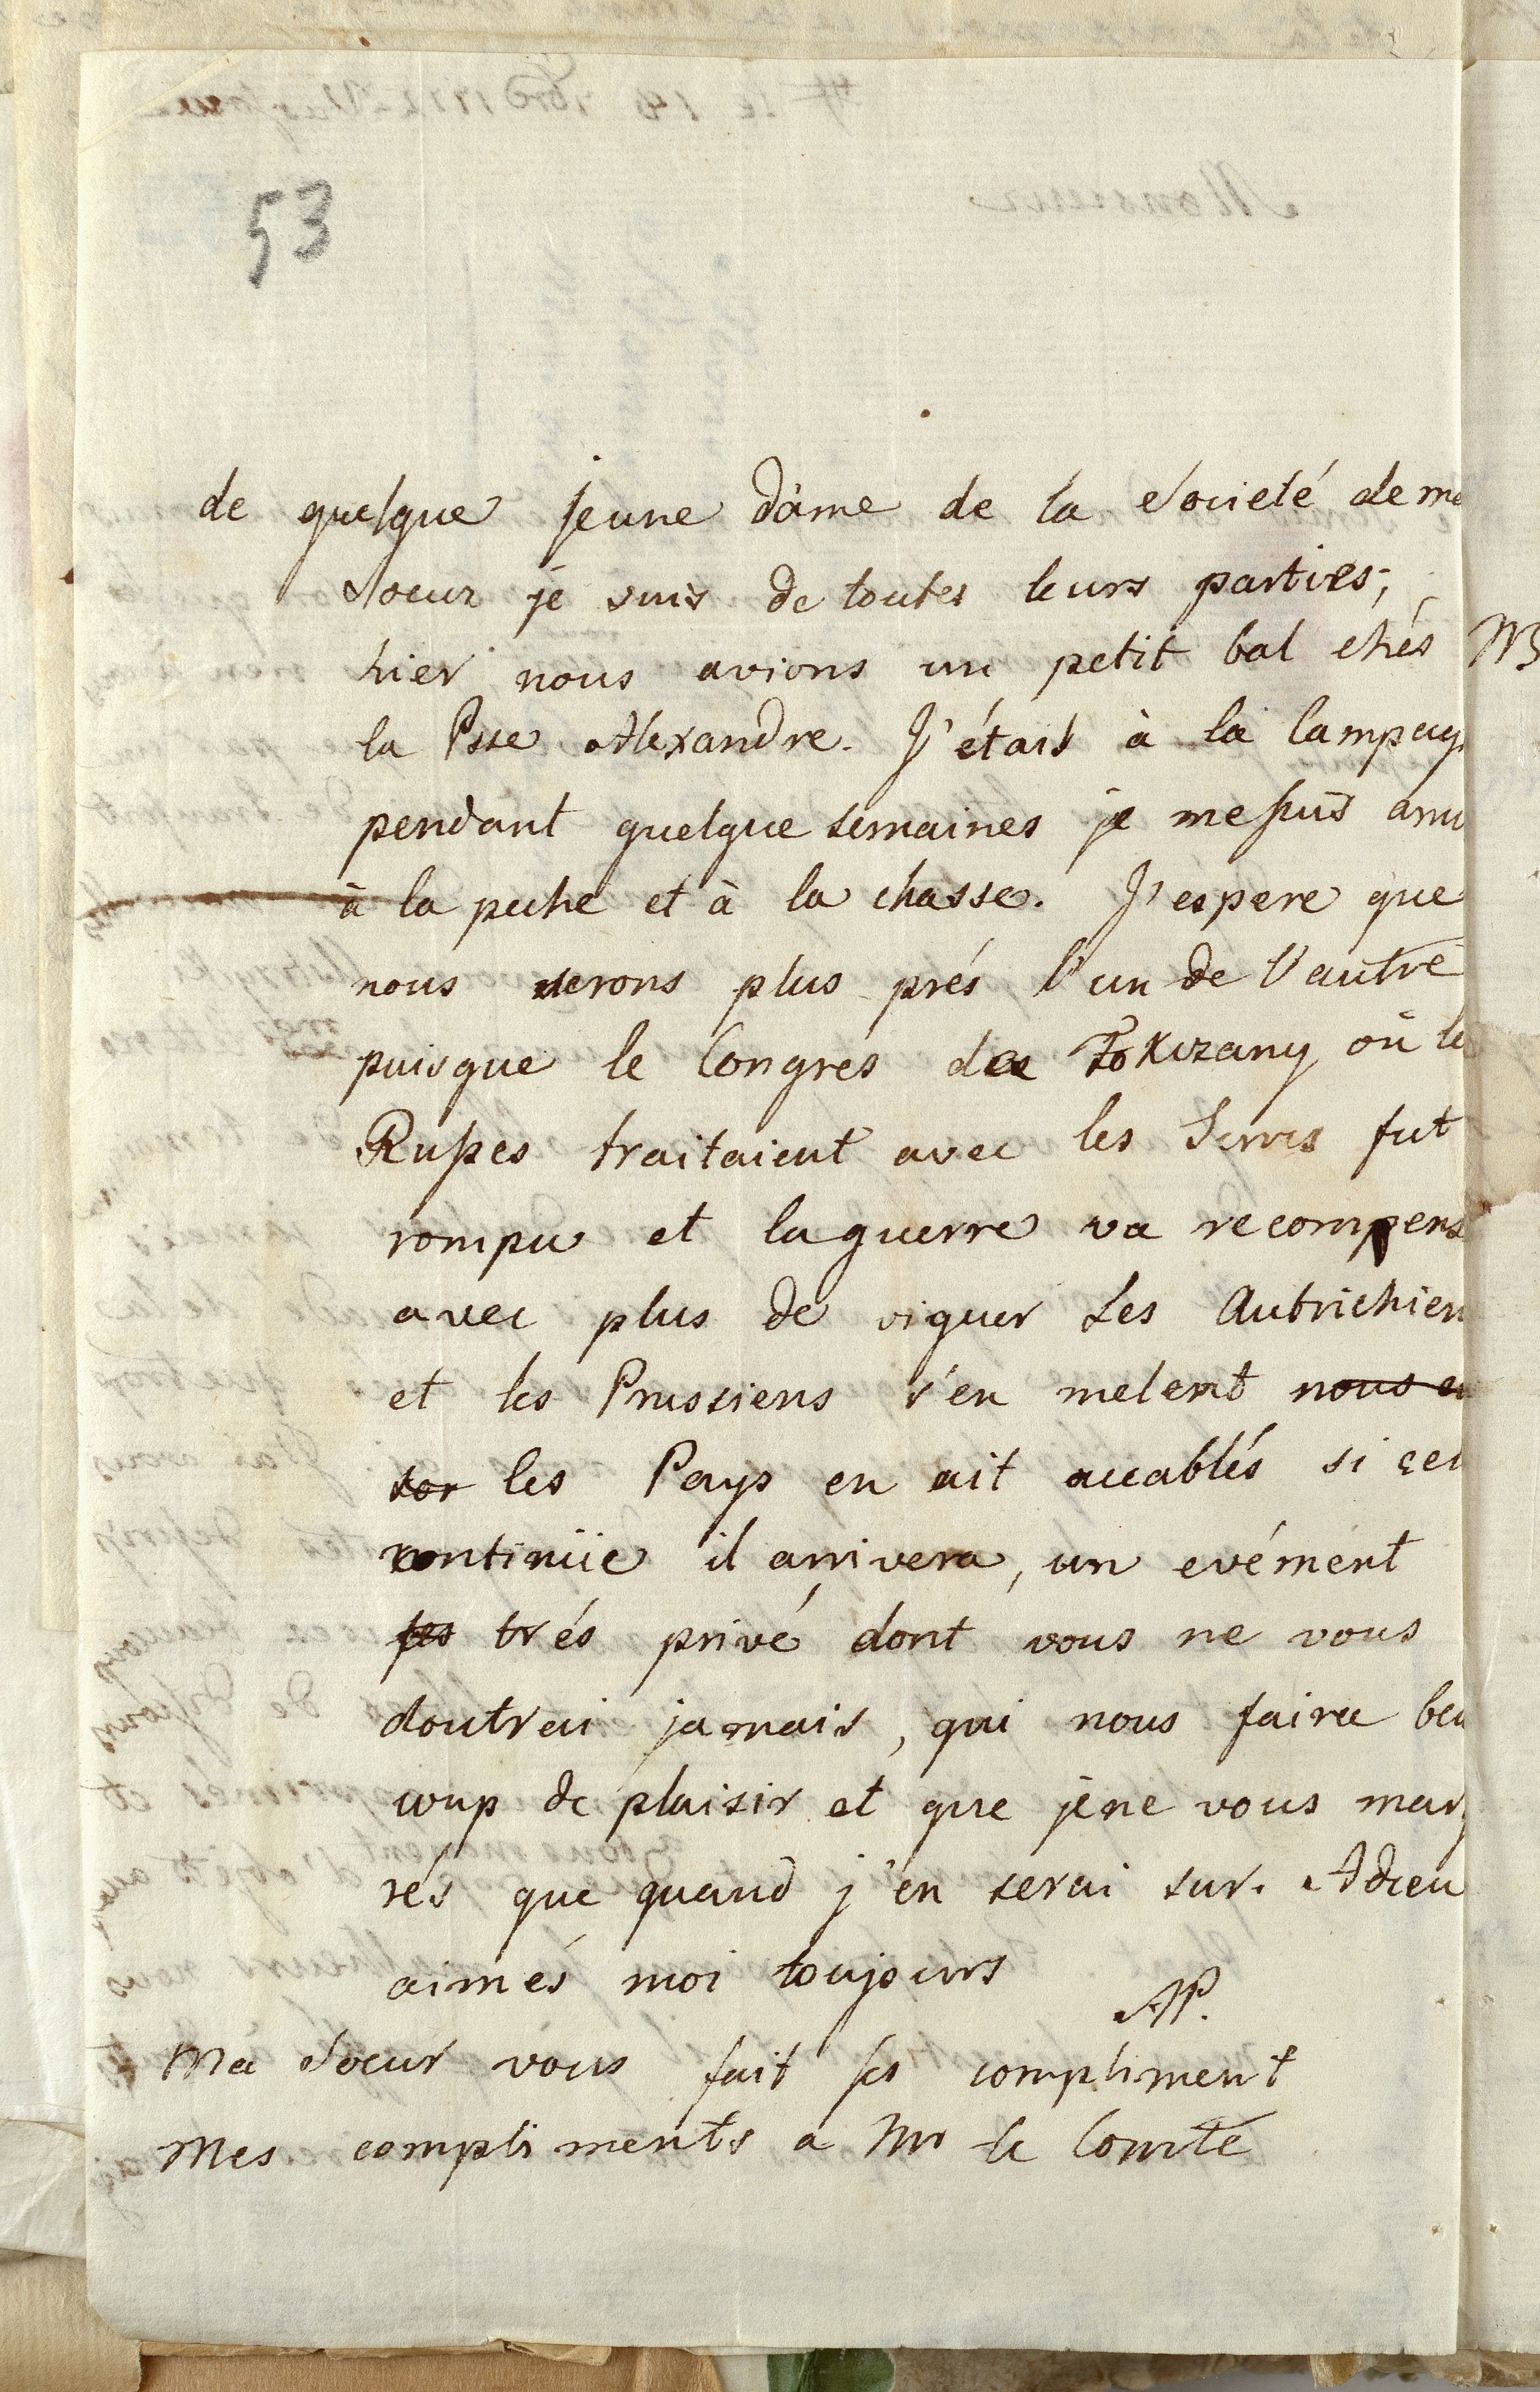 53
de quelque jeune dâme de la Societé de me
Soeur je suis de toutes leurs parties;
hier nous avions un petit bal chés
la Psse Alexandre. J'étais à la Campag
pendant quelque semaines je me suis amu
à la peche et à la chasse. J'espere que
nous serons plus prés l'un de l'autre
puisque le Congres de Fokizany où le
Russes traitaient avec les Turcs fut
rompu et la guerre va recompens
avec plus de viguer Les Autrichien
et les Prussiens s'en melent nous en
sor les Pays en ait accablés si cel
continüe il arrivera, un evément
ses trés privé dont vous ne vous
doutrai jamais, qui nous faira beu
coup de plaisir et que je ne vous marq
rés que quand j'en serai sur. Adieu
aimés moi toujours
AP.
Ma Soeur vous fait ses compliment
Mes compliments a Mr le Comte